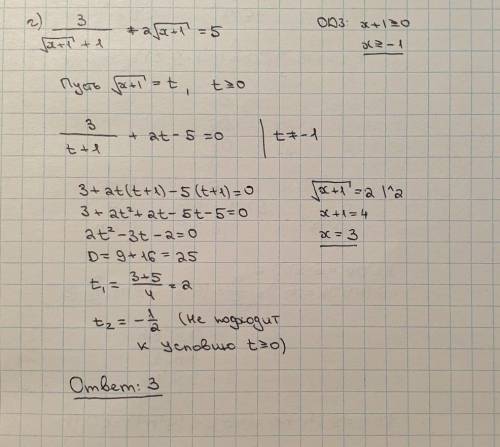 г) 3/(√(x+1) + 1) + 2√(x+1) = 5
ОДЗ: x+1 ≥ 0
x ≥ -1
Пусть √(x+1) = t, t ≥ 0
3/(t+1) + 2t - 5 = 0 | t ≠ -1
3 + 2t(t+1) - 5(t+1) = 0
3 + 2t² + 2t - 5t - 5 = 0
2t² - 3t - 2 = 0
D = 9 + 16 = 25
t₁ = (3+5)/4 = 2
t₂ = -1/2 (не подходит
к условию t ≥ 0)
√(x+1) = 2 |^2
x+1 = 4
x = 3
Ответ: 3